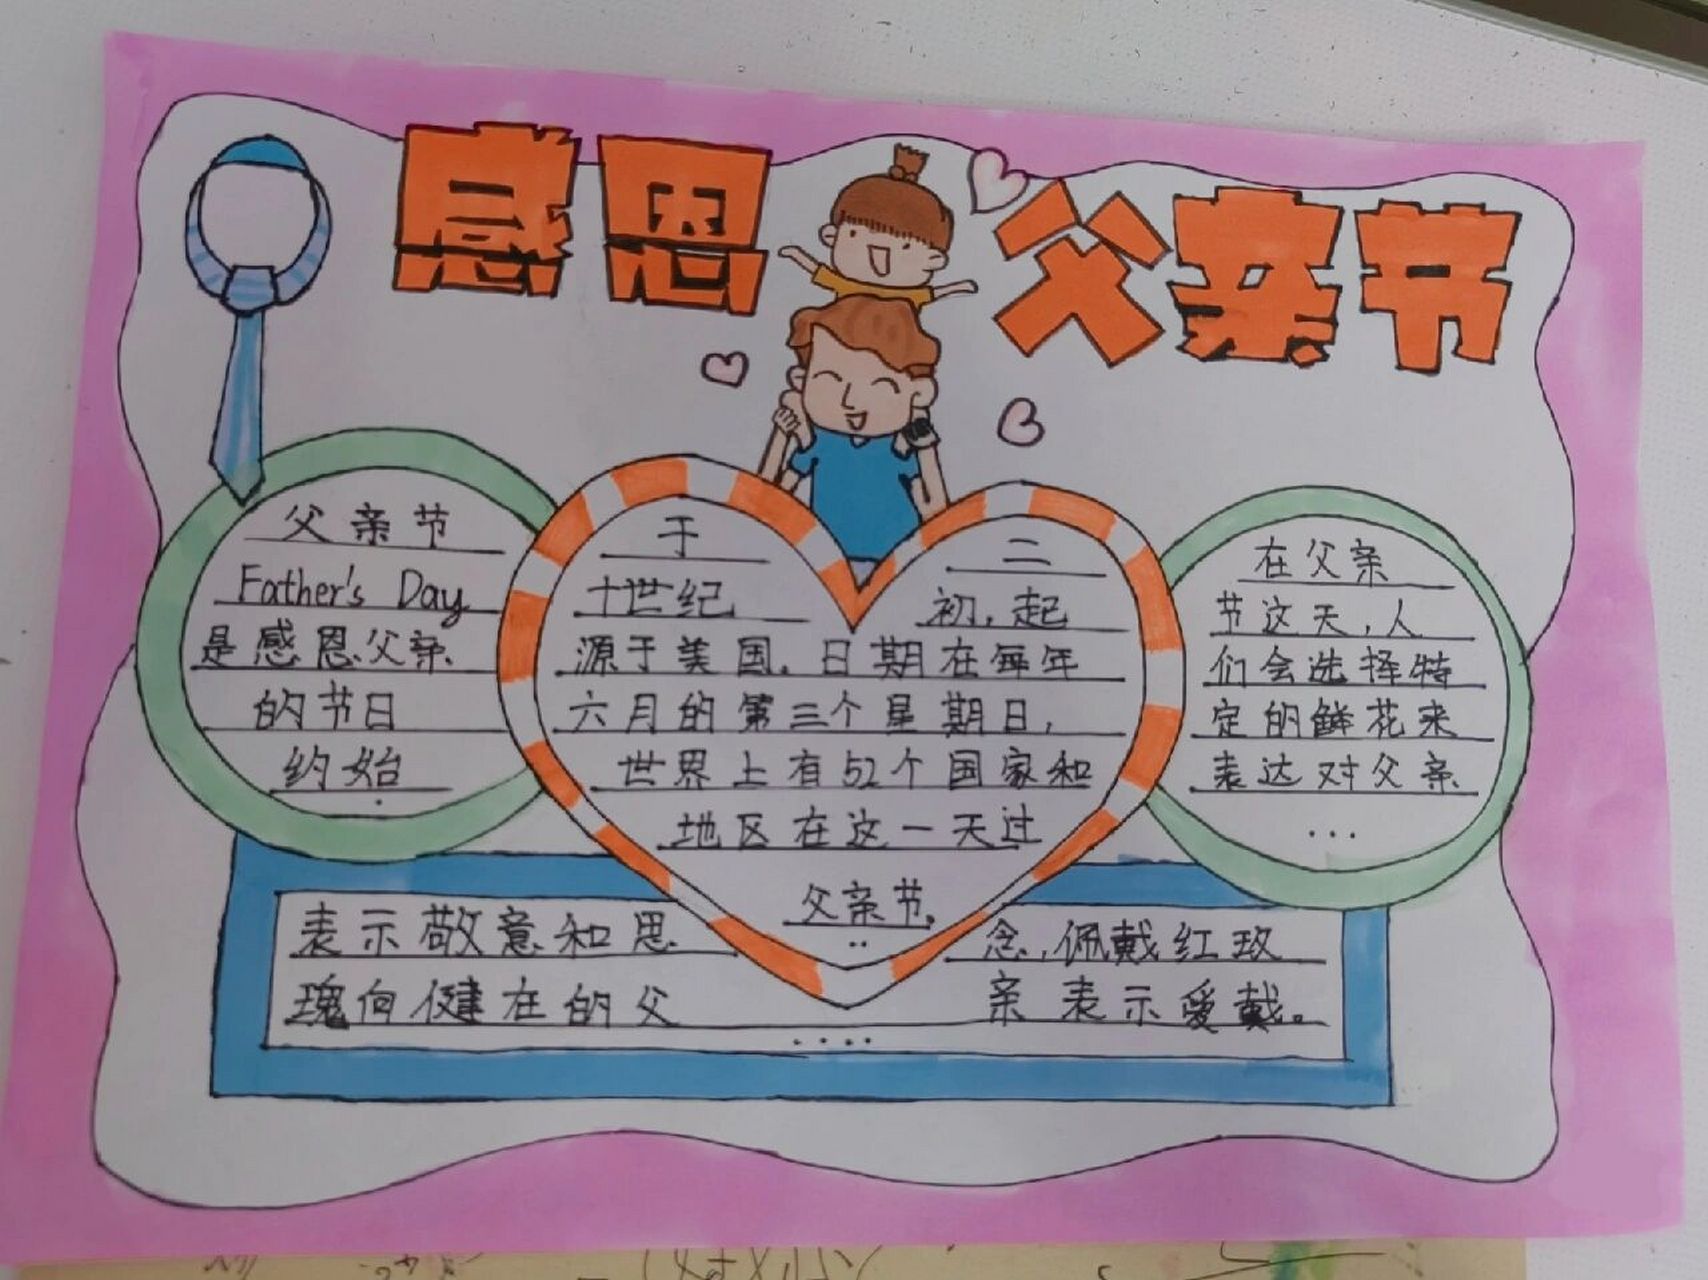 感恩 父亲节
父亲节
Father's Day
是感恩父亲
的节日
约始
于 二
十世纪 初，起
源于美国。日期在每年
六月的第三个星期日，
世界上有52个国家和
地区在这一天过
父亲节。
..
在父亲
节这天，人
们会选择特
定的鲜花来
表达对父亲
...
表示敬意和思 念，佩戴红玫
瑰向健在的父 亲表示爱戴。
....